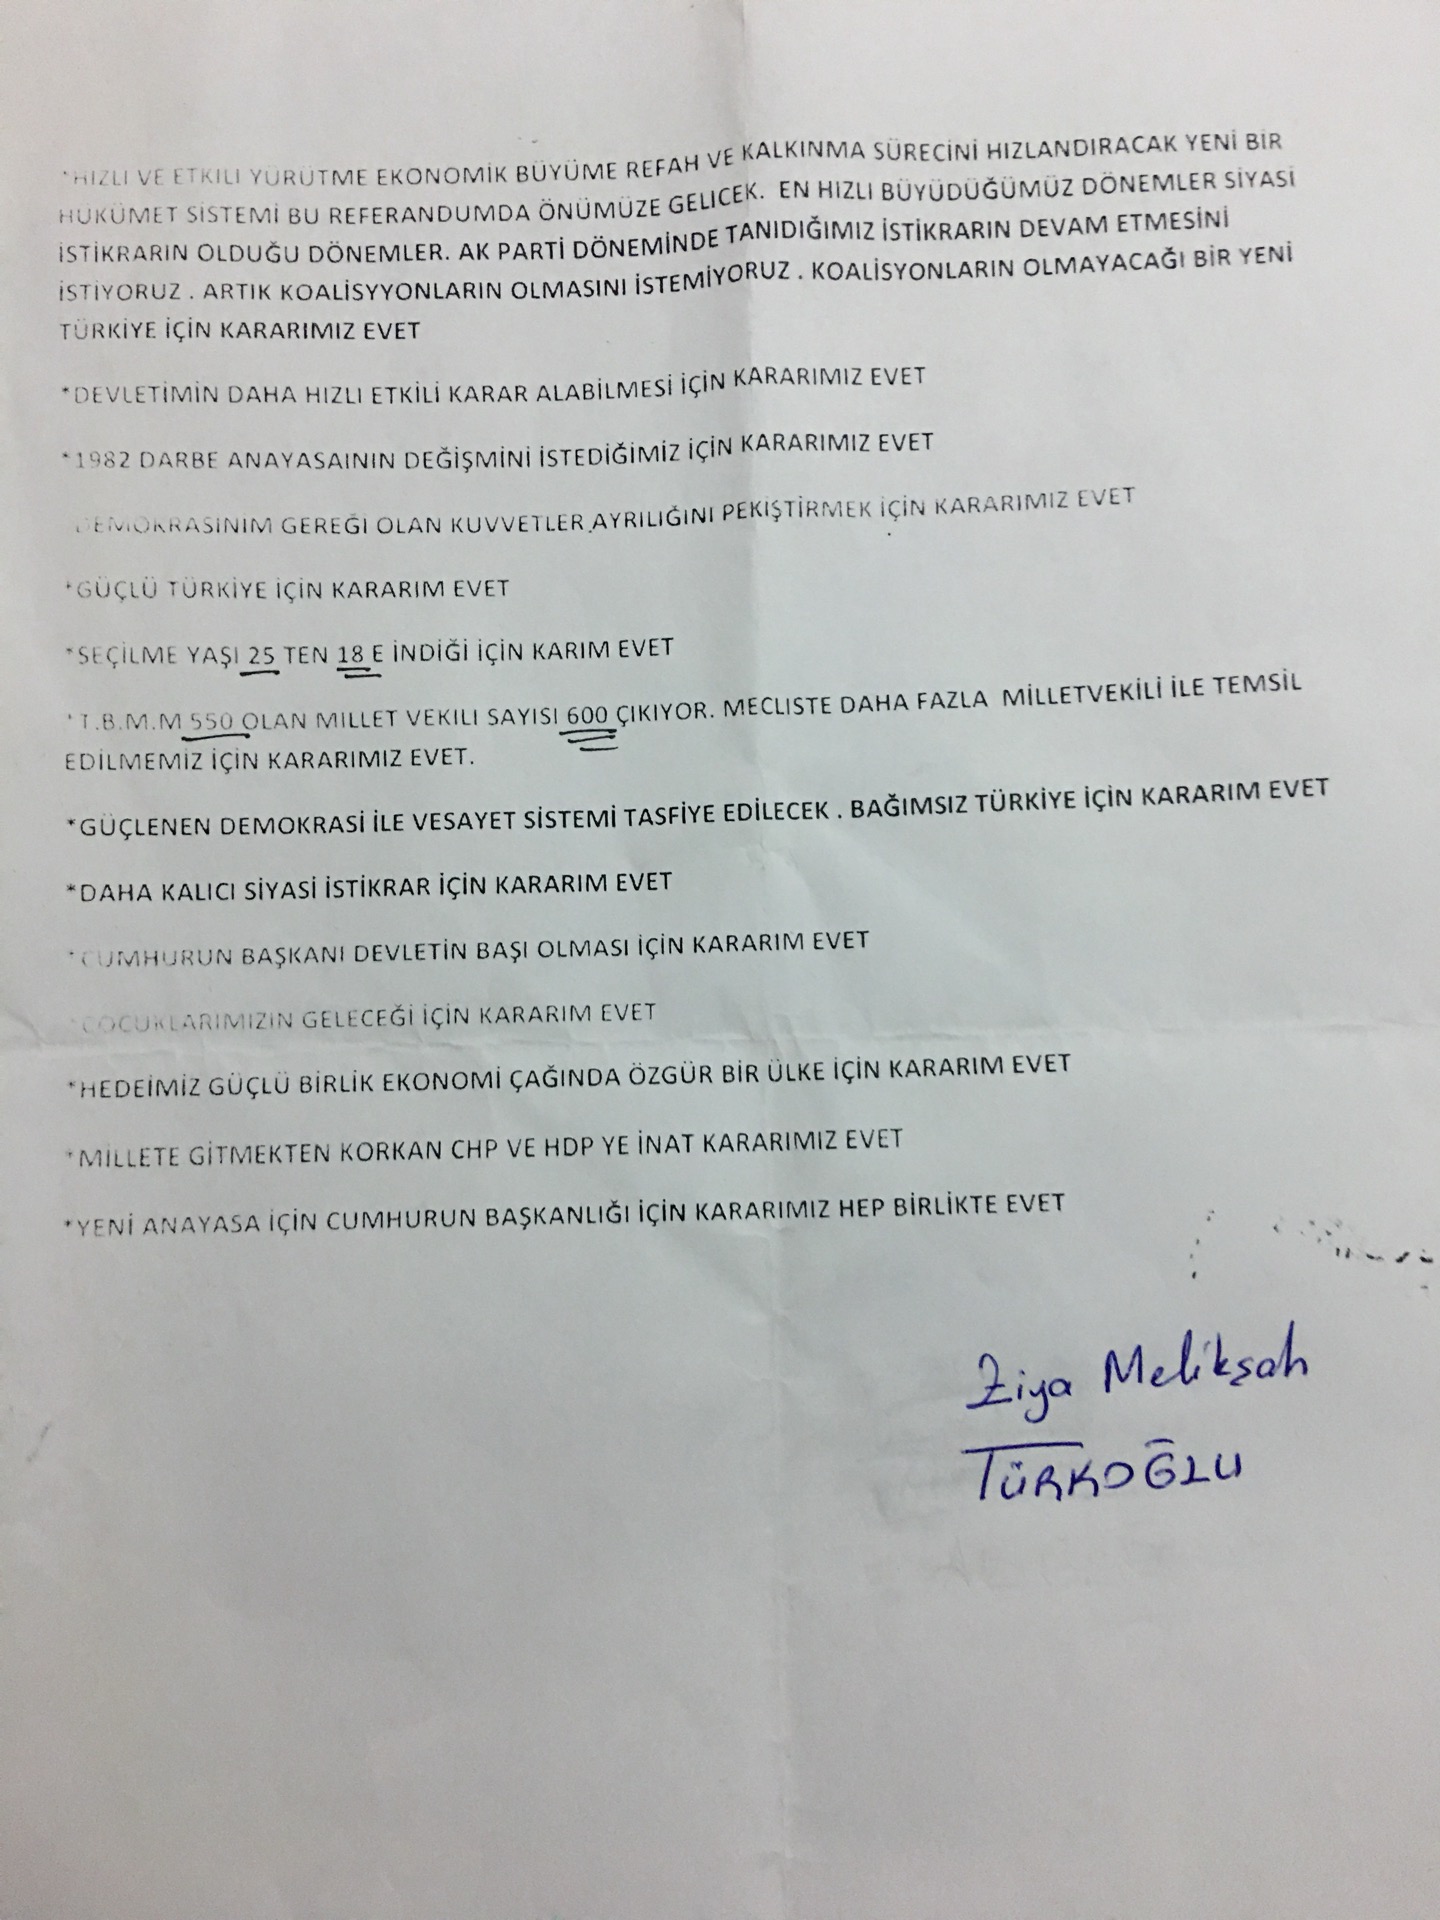 *HIZLI VE ETKILI YÜRÜTME EKONOMİK BÜYÜME REFAH VE KALKINMA SÜRECİNİ HIZLANDIRACAK YENİ BİR
HÜKÜMET SİSTEMİ BU REFERANDUMDA ÖNÜMÜZE GELICEK. EN HIZLI BÜYÜDÜĞÜMÜZ DÖNEMLER SİYASİ
İSTİKRARIN OLDUĞU DÖNEMLER. AK PARTİ DÖNEMİNDE TANIDIĞIMIZ İSTİKRARIN DEVAM ETMESİNİ
İSTİYORUZ . ARTIK KOALİSYYONLARIN OLMASINI İSTEMİYORUZ . KOALİSYONLARIN OLMAYACAĞI BİR YENİ
TÜRKİYE İÇİN KARARIMIZ EVET
*DEVLETİMİN DAHA HIZLI ETKİLİ KARAR ALABİLMESİ İÇİN KARARIMIZ EVET
*1982 DARBE ANAYASAININ DEĞİŞMİNİ İSTEDİĞİMİZ İÇİN KARARIMIZ EVET
DEMOKRASININ GEREĞI OLAN KUVVETLER AYRILIĞINI PEKIŞTİRMEK İÇİN KARARIMIZ EVET
*GÜÇLÜ TÜRKİYE İÇİN KARARIM EVET
*SEÇİLME YAŞI 25 TEN 18 E İNDİĞİ İÇİN KARIM EVET
*T.B.M.M 550 OLAN MILLET VEKILI SAYISI 600 ÇIKIYOR. MECLISTE DAHA FAZLA MİLLETVEKİLİ İLE TEMSİL
EDİLMEMİZ İÇİN KARARIMIZ EVET.
*GÜÇLENEN DEMOKRASİ İLE VESAYET SİSTEMİ TASFİYE EDİLECEK . BAĞIMSIZ TÜRKİYE İÇİN KARARIM EVET
*DAHA KALICI SİYASİ İSTİKRAR İÇİN KARARIM EVET
*CUMHURUN BAŞKANI DEVLETİN BAŞI OLMASI İÇİN KARARIM EVET
*ÇOCUKLARIMIZIN GELECEĞİ İÇİN KARARIM EVET
*HEDEİMİZ GÜÇLÜ BİRLİK EKONOMİ ÇAĞINDA ÖZGÜR BİR ÜLKE İÇİN KARARIM EVET
*MİLLETE GİTMEKTEN KORKAN CHP VE HDP YE İNAT KARARIMIZ EVET
*YENİ ANAYASA İÇİN CUMHURUN BAŞKANLIĞI İÇİN KARARIMIZ HEP BİRLİKTE EVET
Ziya Melikşah
TÜRKOĞLU